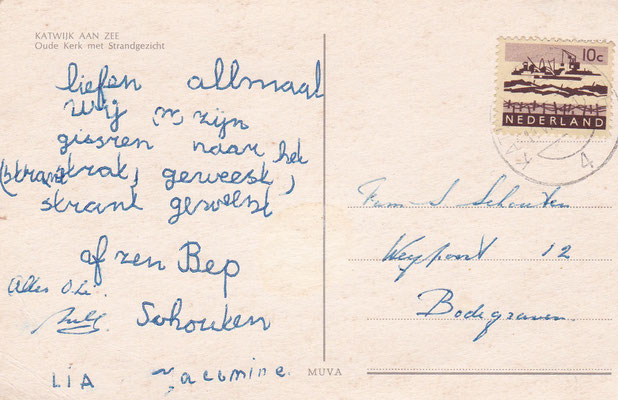 KATWIJK AAN ZEE
Oude Kerk met Strandgezicht
liefen allmaal
wij zijn
gissren naar het
(strant strat, geweest)
strant geweest
afzen Bep
Alles O.k.
Schouten
LIA Jacomine.
MUVA
10c
NEDERLAND
Fam J Schouten
Weypoort 12
Bodegraven.
4